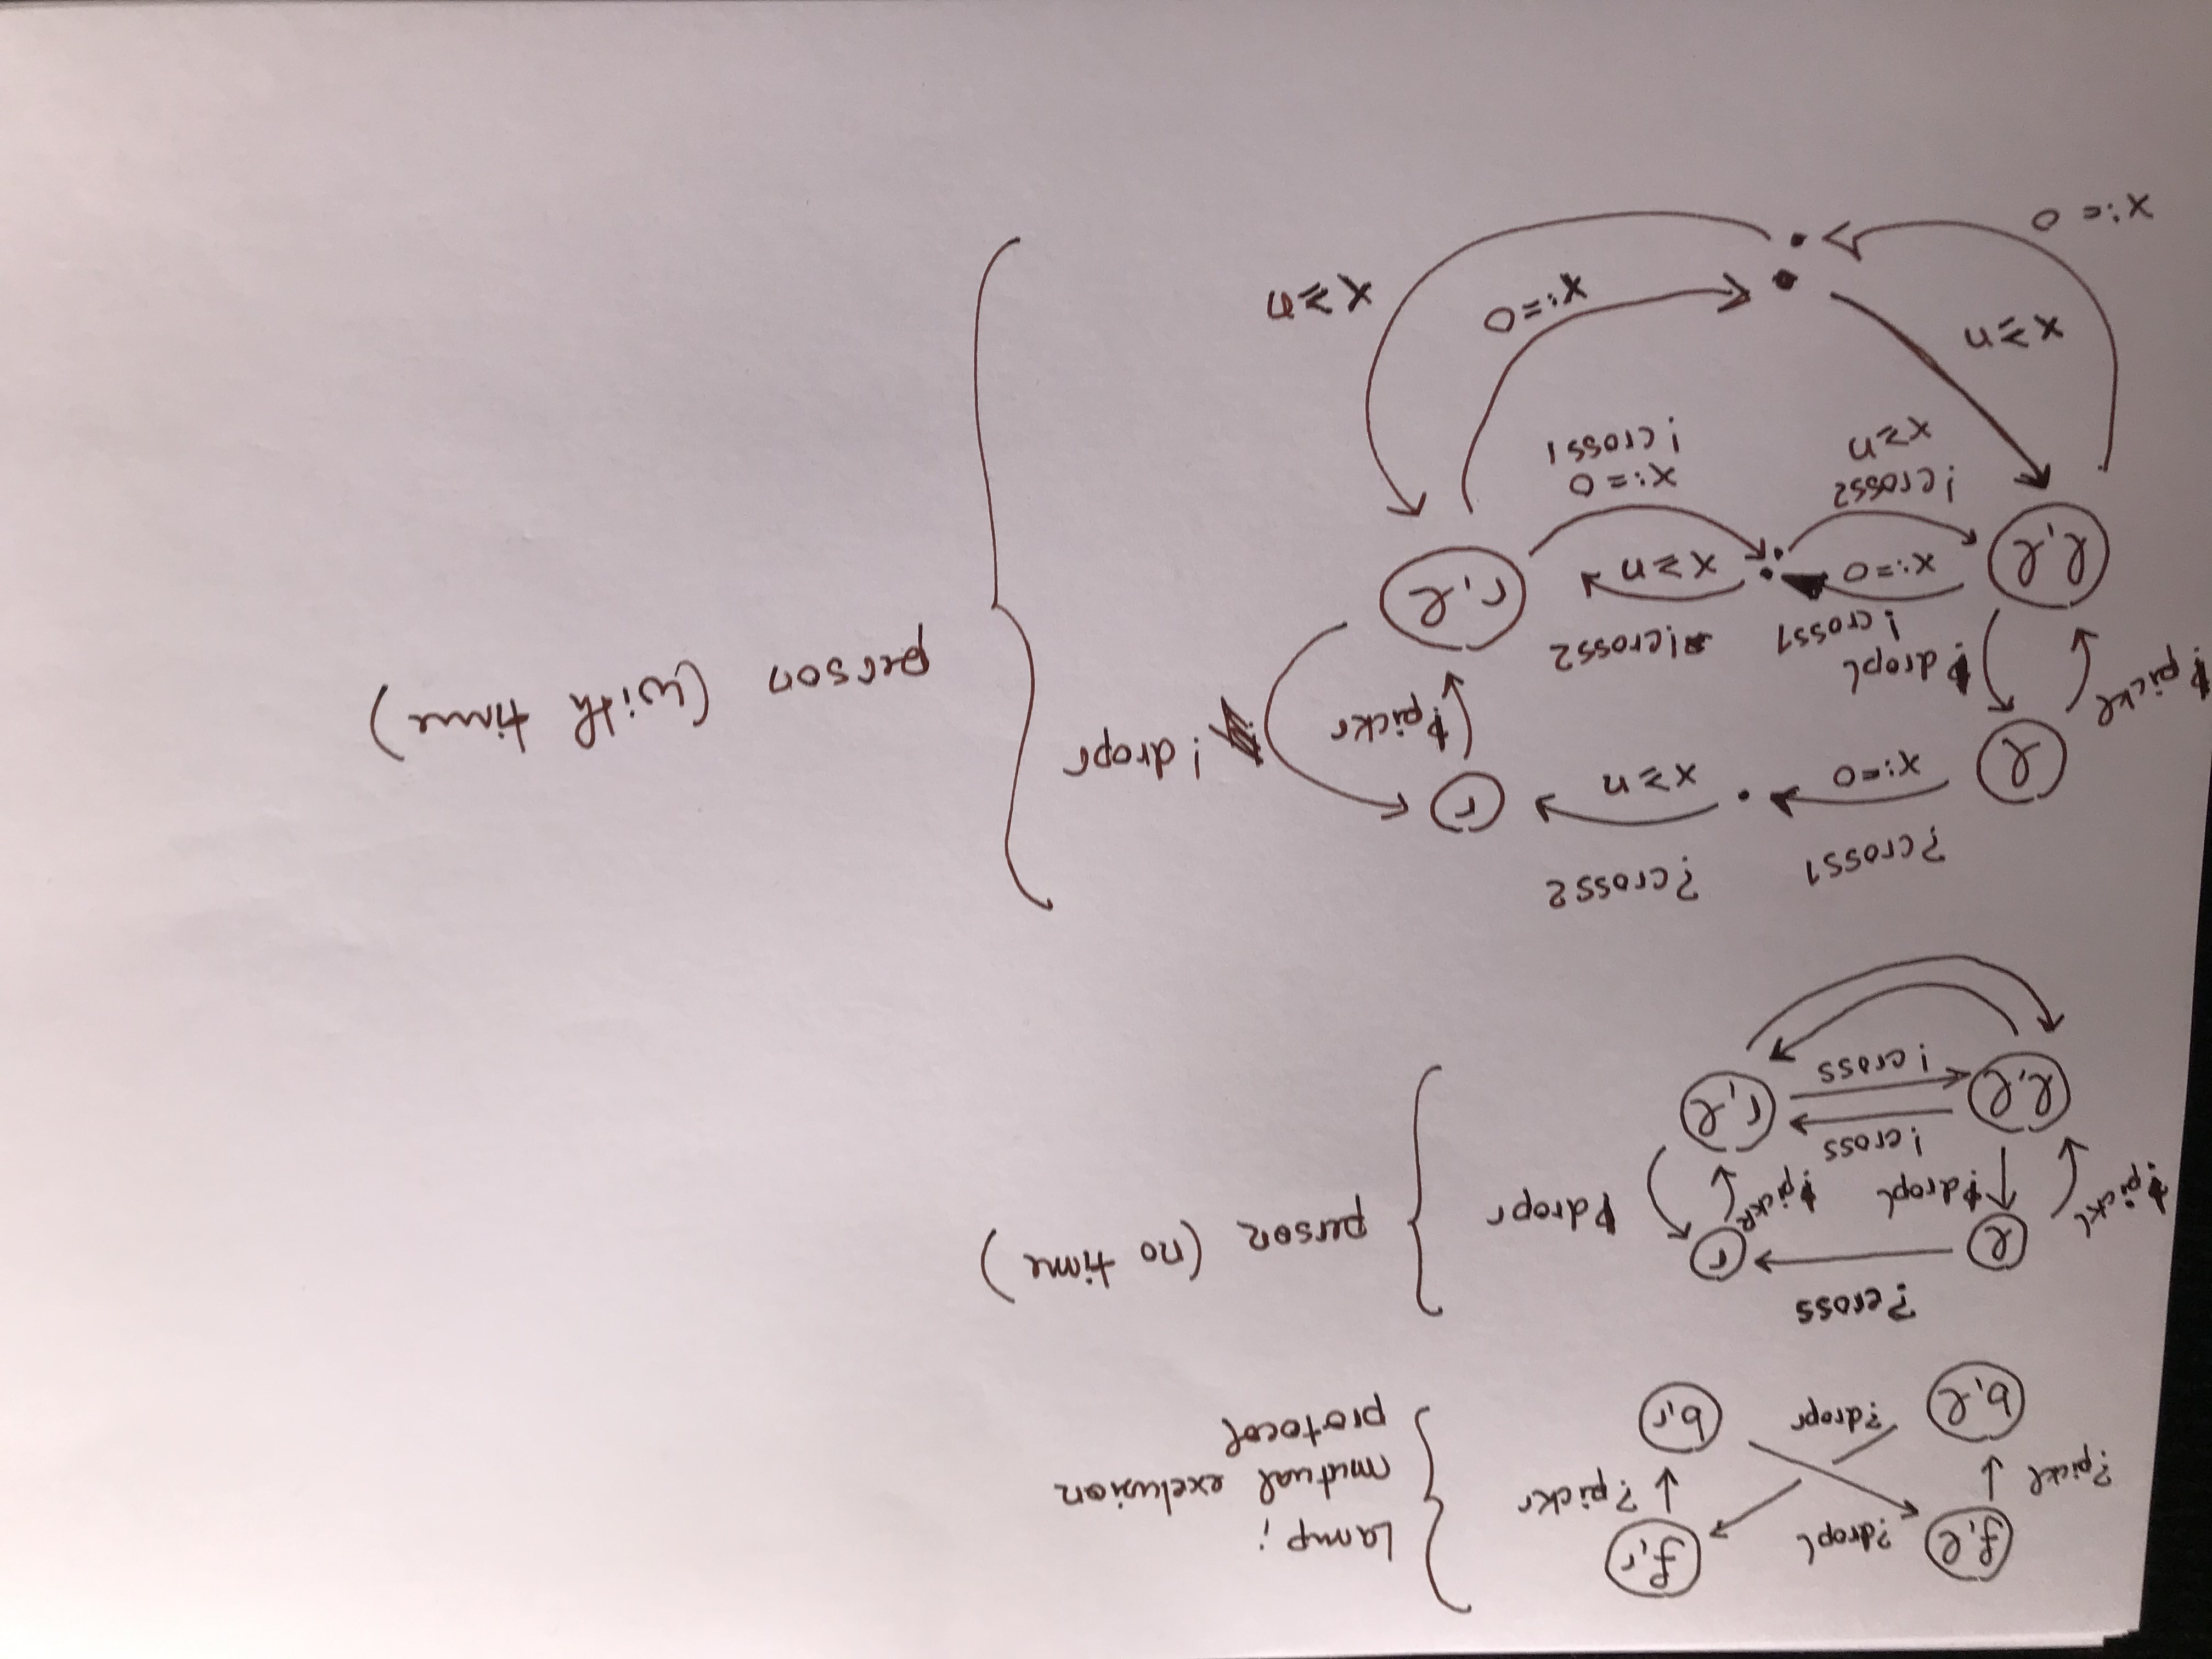 f,l
?dropl
f,r
?pickl ↓
↓ ?pickr
b,l
?dropr
b,r
Lamp;
mutual exclusion
protocol
?cross
l
r
!pickl
!dropl
!pickr
!dropr
!cross
l,l
r,l
!cross
person (no time)
?cross1
?cross2
l
x:=0
x≥n
r
!pickl
!dropl
!pickr
!dropr
!cross1
!cross2
l,l
x:=0
x≥n
r,l
!cross2
x≥n
x:=0
!cross1
x≥n
x:=0
x:=0
x≥n
person (with time)